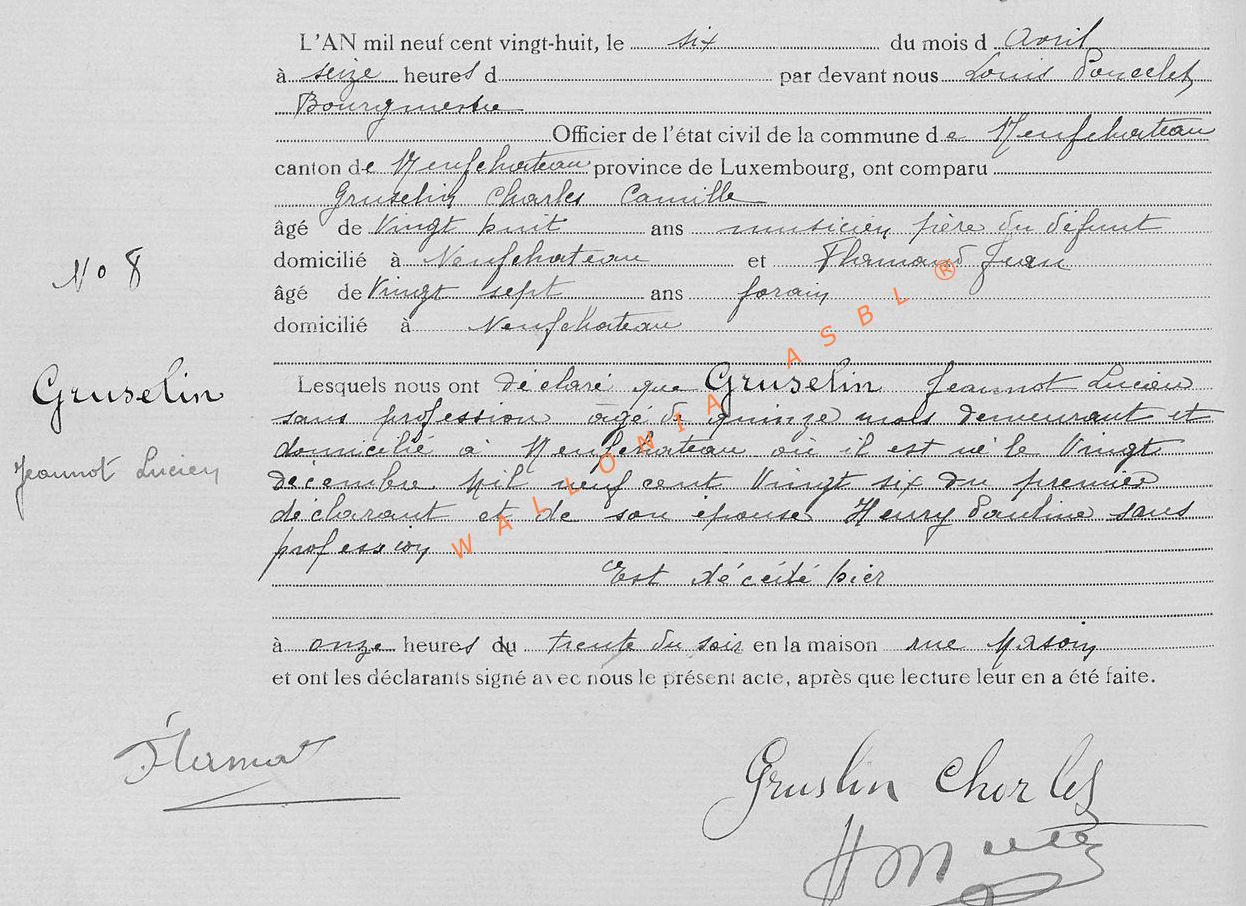 L'AN mil neuf cent vingt-huit, le six du mois d Avril
à seize heures d par devant nous Louis Poncelet
Bourgmestre
Officier de l'état civil de la commune de Neufchateau
canton de Neufchateau province de Luxembourg, ont comparu
Gruselin Charles Camille
âgé de Vingt huit ans musicien père du défunt
domicilié à Neufchateau et Jean
No 8
âgé de Vingt sept ans forain
domicilié à Neufchateau
Gruselin
Jeannot Lucien
Lesquels nous ont déclaré que Gruselin Jeannot Lucien
sans profession âgé de quinze mois demeurant et
domicilié à Neufchateau où il est né le Vingt
décembre mil neuf cent Vingt six du premier
déclarant et de son épouse Henry Pauline sans
profession
Est décédé hier
à onze heures du trente du soir en la maison rue
et ont les déclarants signé avec nous le présent acte, après que lecture leur en a été faite.
Gruslin Charles
WALLONIA ASBL ®